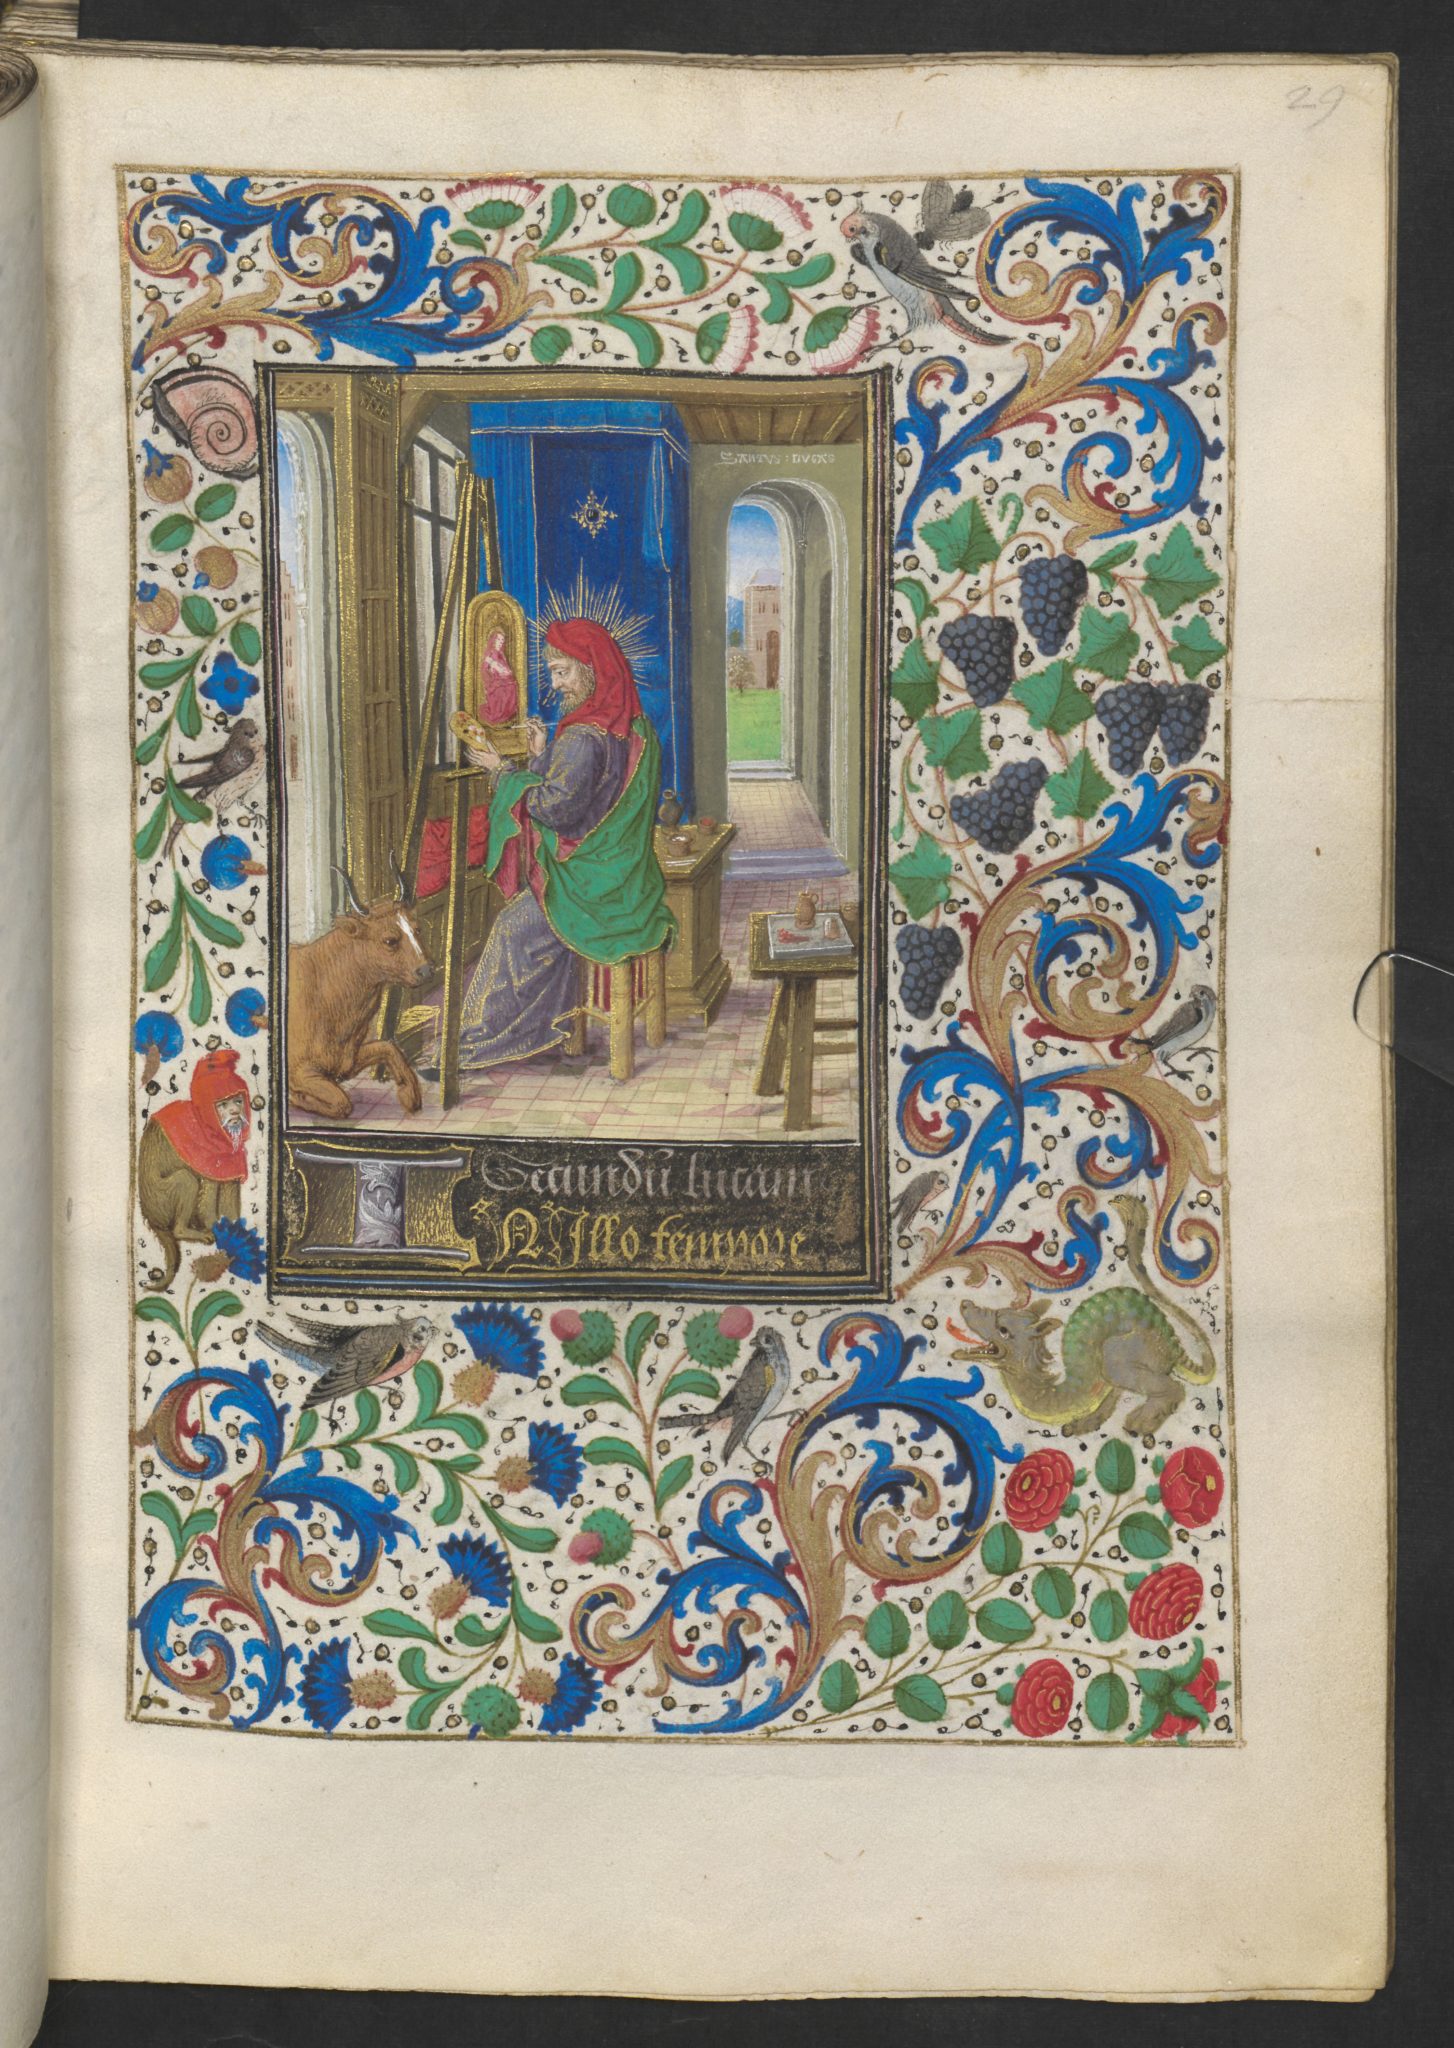 29
SANTVS : LVCAS
Secundũ lucam
I
N Illo tempore